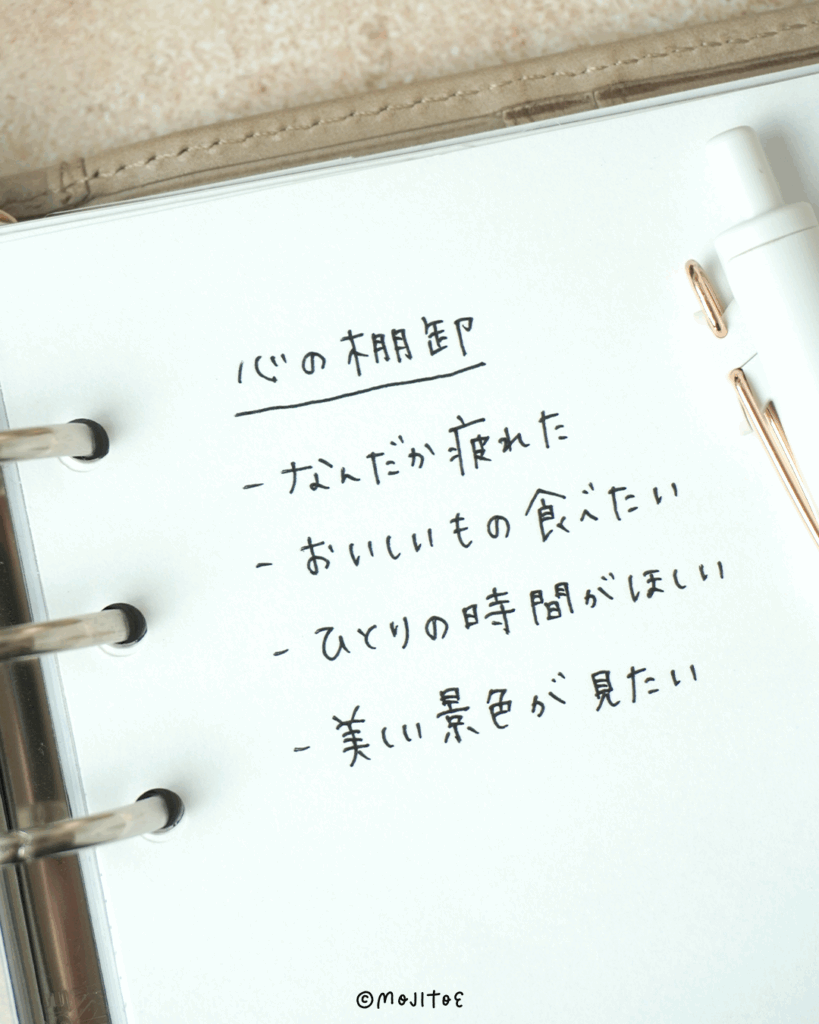 心の棚卸
- なんだか疲れた
- おいしいもの食べたい
- ひとりの時間がほしい
- 美しい景色が見たい
©MOJITOE